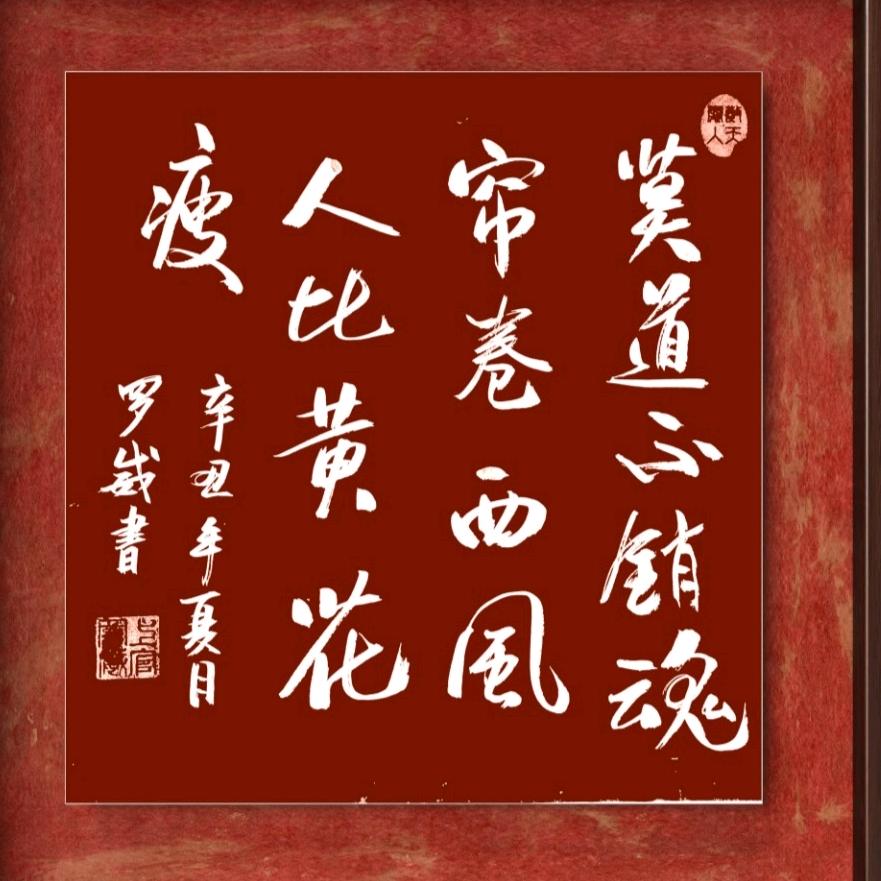 莫道不銷魂
帘卷西風
人比黄花
瘦
辛丑年夏月
罗書